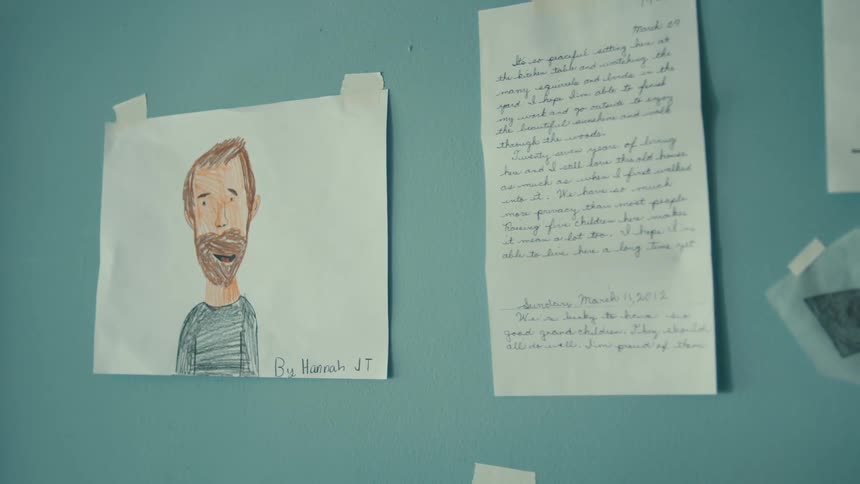 By Hannah JT
March 09
It's so peaceful sitting here at
the kitchen table and watching the
many squirrels and birds in the
yard. I hope I'm able to finish
my work and go outside to enjoy
the beautiful sunshine and walk
through the woods.
Twenty seven years of living
here and I still love this old house
as much as when I first walked
into it. We have so much
more privacy than most people
Raising five children here makes
it mean a lot too. I hope I'm
able to live here a long time yet
Sunday March 11, 2012
We're lucky to have so
good grand children. They should
all do well. I'm proud of them